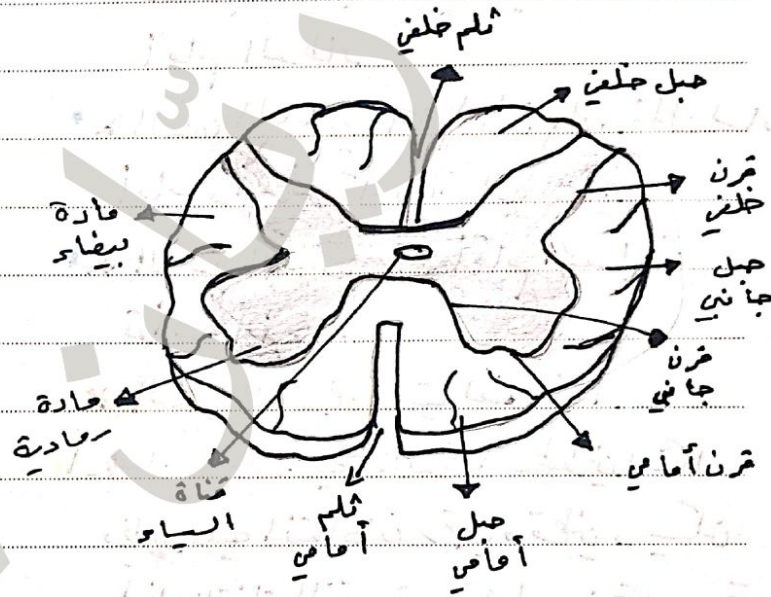 ثلم خلفي
حبل خلفي
قرن
خلفي
حبل
جانبي
قرن
جانبي
قرن أمامي
حبل
أمامي
ثلم
أمامي
قناة
السيساء
مادة
رمادية
مادة
بيضاء